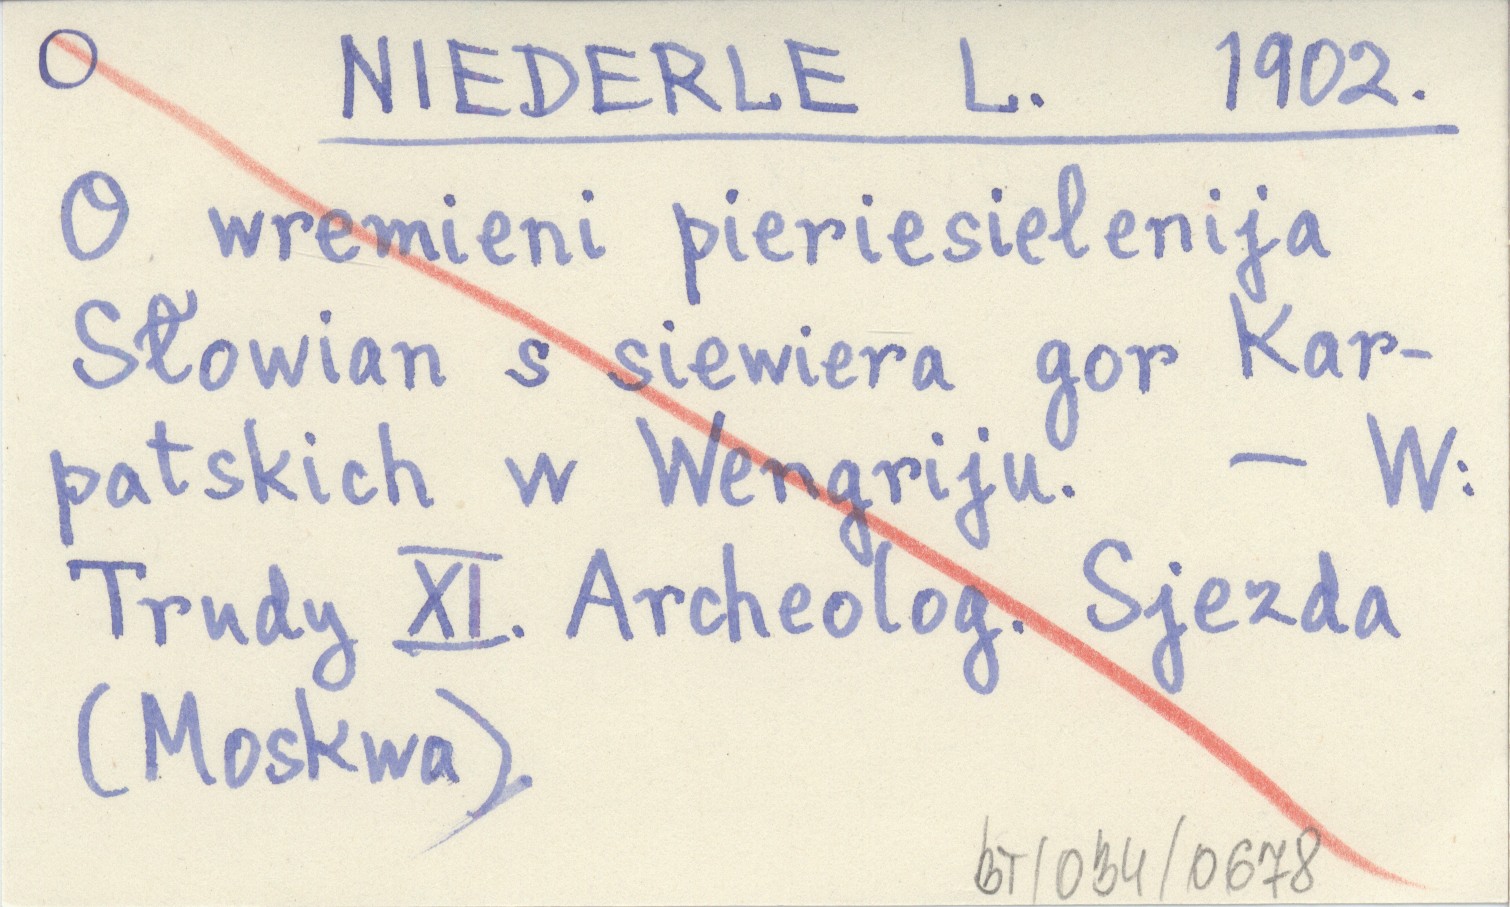 O NIEDERLE L. 1902.
O wremieni pieriesielenija
Słowian s siewiera gor Kar-
patskich w Wengriju. – W:
Trudy XI. Archeolog. Sjezda
(Moskwa).
BT/034/0678